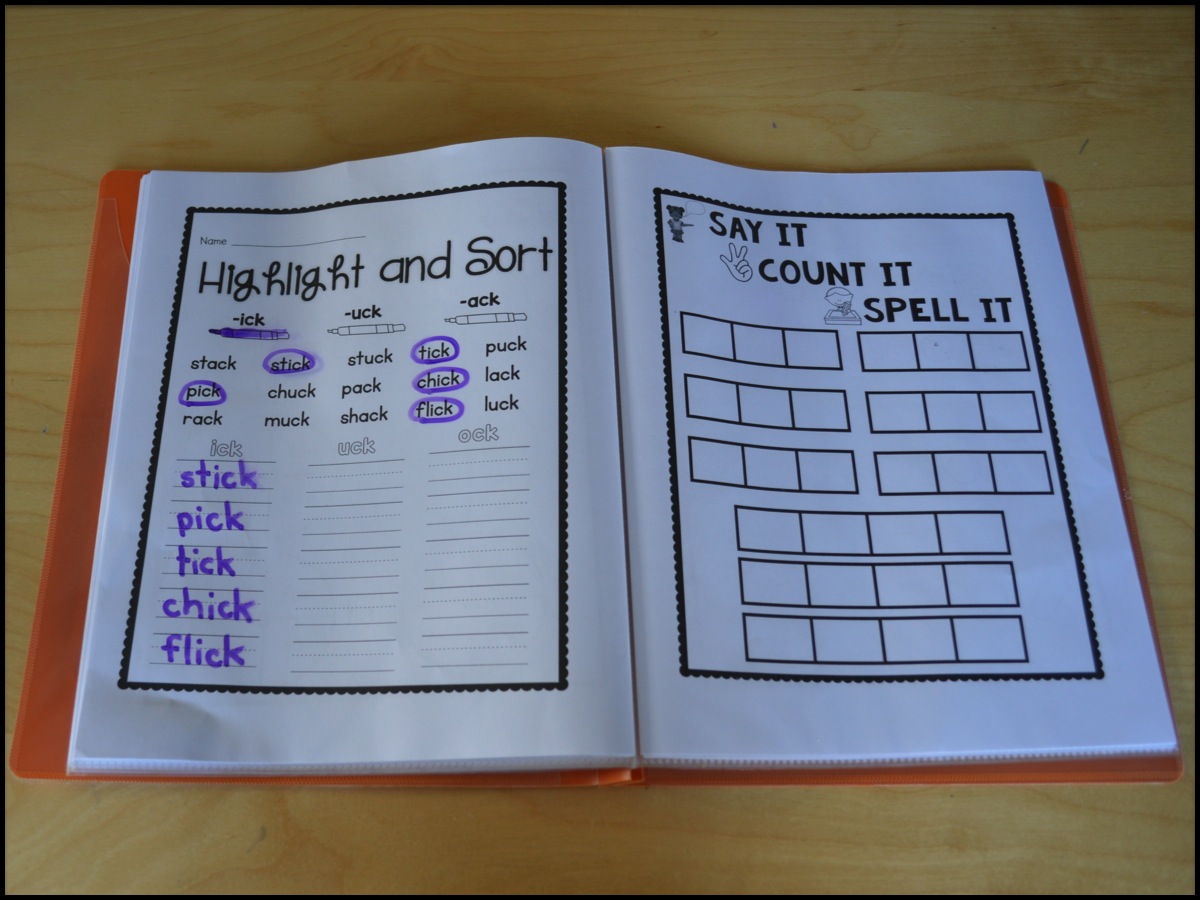 Name
Highlight and Sort
-ick -uck -ack
stack stick stuck tick puck
pick chuck pack chick lack
rack muck shack flick luck
ick uck ock
stick
pick
tick
chick
flick
SAY IT
COUNT IT
SPELL IT